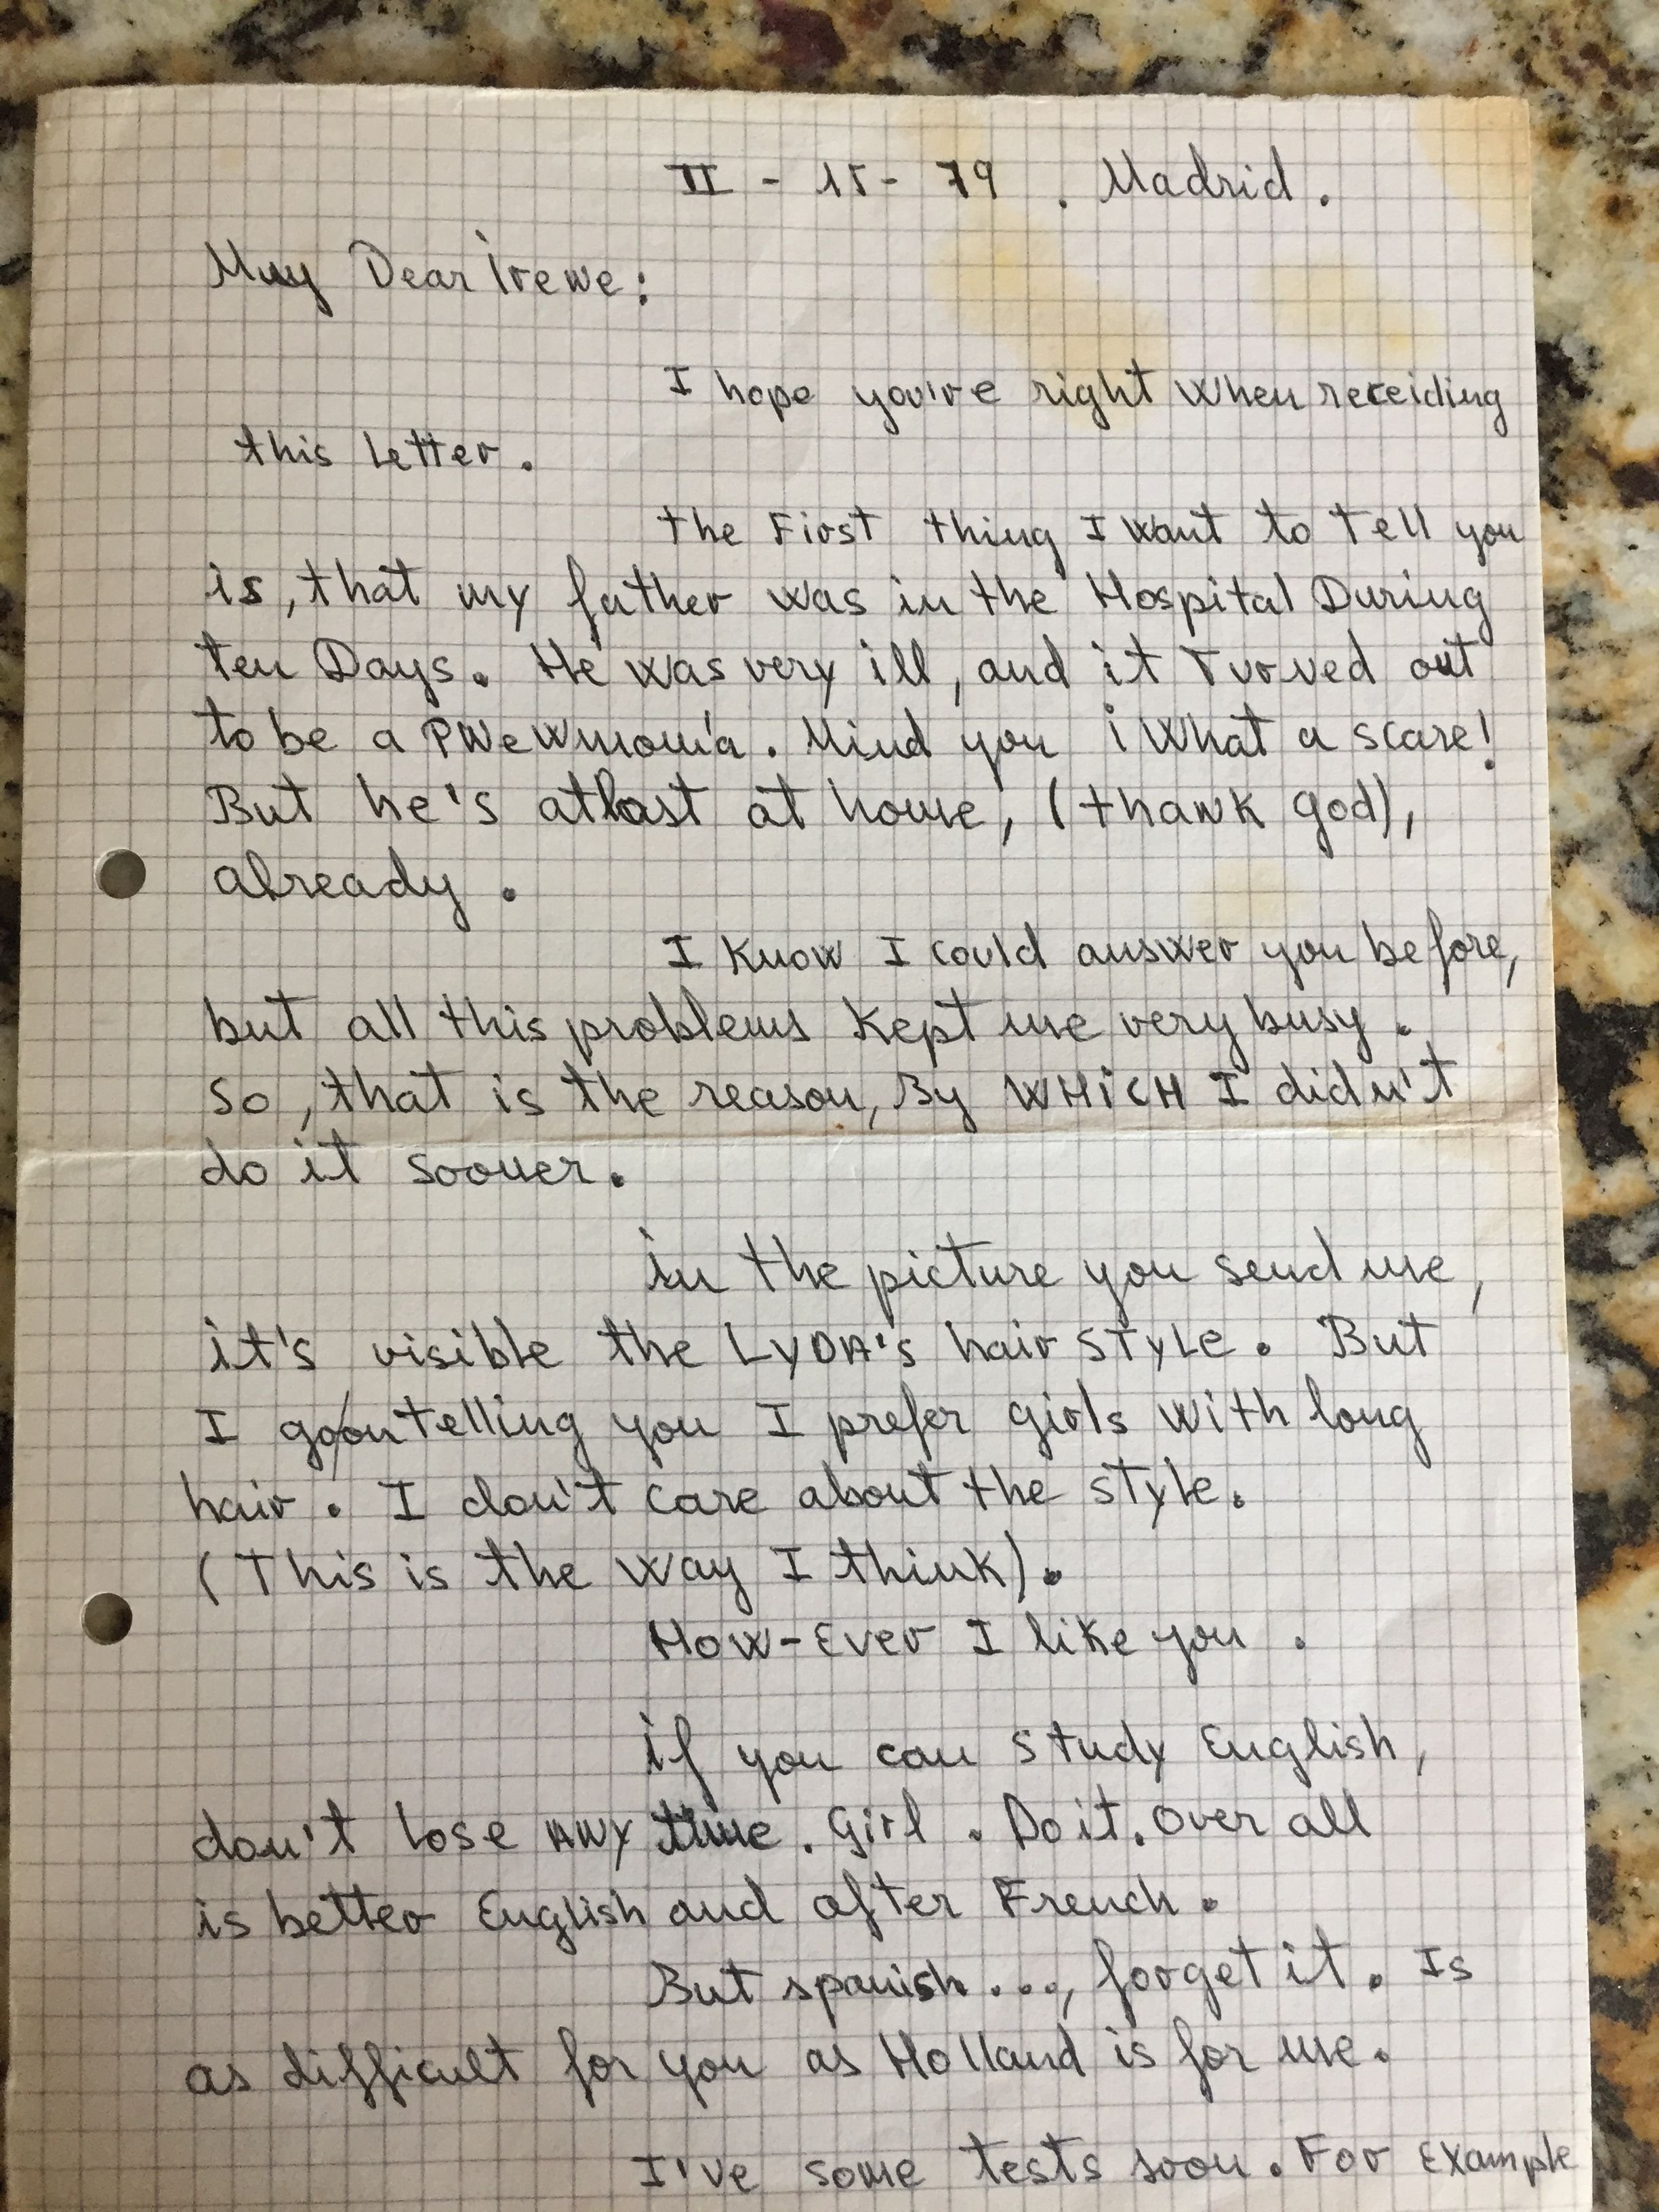 II - 15 - 79 . Madrid.
Muy Dear Irene:
I hope you're right when receiding
this letter.
the First thing I want to tell you
is, that my father was in the Hospital During
ten Days. He was very ill, and it Turned out
to be a PNeWmonía. Mind you ¡What a scare!
But he's atlast at home, (thank god),
already.
I know I could answer you before,
but all this problems kept me very busy.
so, that is the reason, By WHiCH I didn't
do it sooner.
in the picture you send me,
it's visible the LYDA's hair STYLE. But
I go/on telling you I prefer girls with long
hair. I don't care about the style.
(This is the way I think).
How-Ever I like you.
if you can study English,
don't lose ANY time. Girl. Do it. Over all
is better English and after French.
But spanish..., forget it. Is
as difficult for you as Holland is for me.
I've some tests soon. For Example